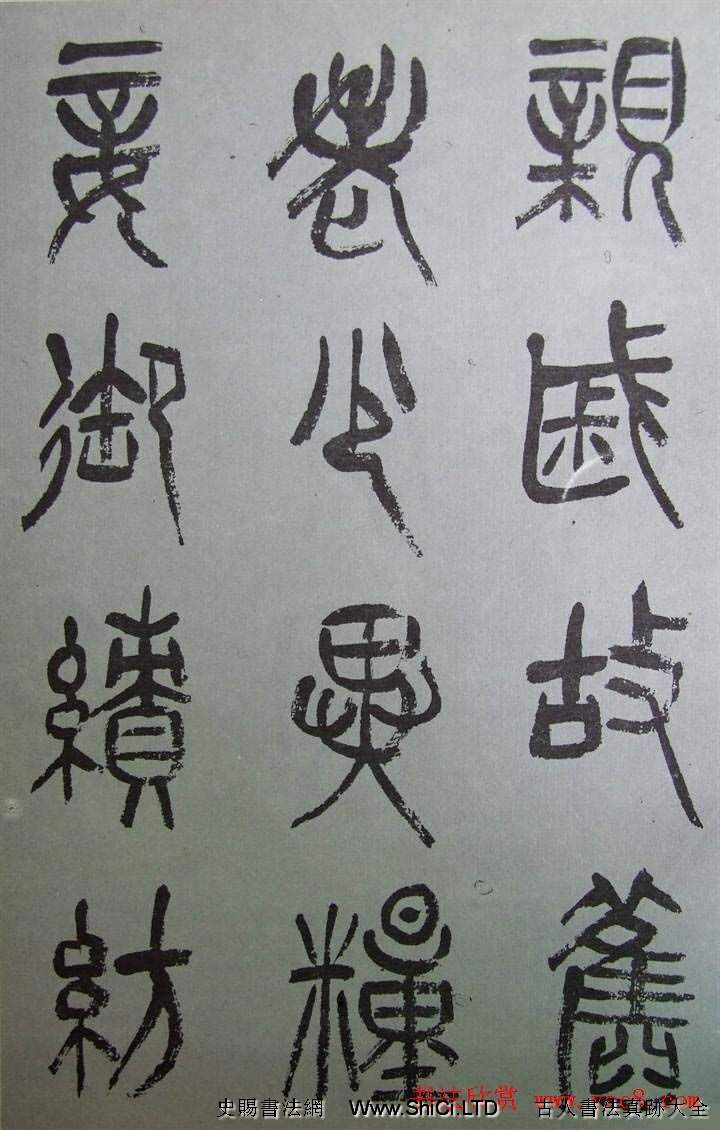 親戚故舊
老少異糧
妾御績紡
史賜書法網 www.ShiCi.LTD 古人書法真跡大全
书法欣赏